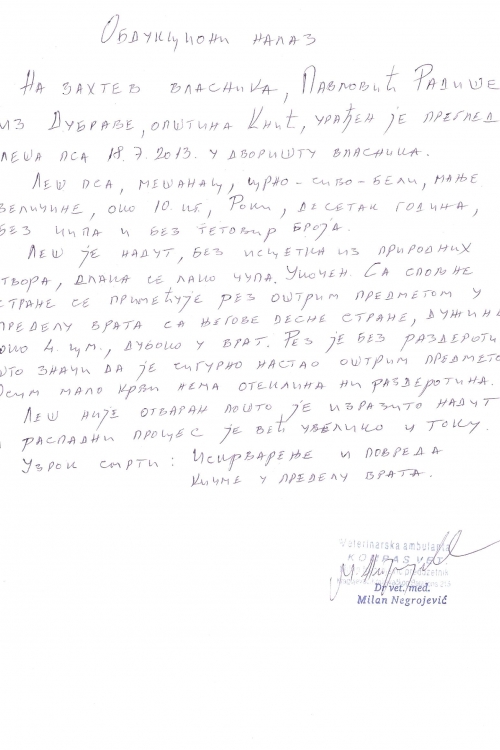 Обдукциони налаз
На захтев власника, Павловић Радише
из Дубраве, општина Кнић, урађен је преглед
леша пса 18.7.2013. у дворишту власника.
Леш пса, мешанац, црно-сиво-бели, мање
величине, око 10 кг, Роки, десетак година,
без чипа и без тетовир броја.
Леш је надут, без исцетка из природних
отвора, длака се лако чупа. Укочен. Са спољне
стране се примећује рез оштрим предметом у
пределу врата са његове десне стране, дужине
око 4 цм., дубоко у врат. Рез је без раздероти
што значи да је сигурно настао оштрим предмето
Осим мало крви нема отеклина ни раздеротина.
Леш није отваран пошто је изразито надут
и распадни процес је већ увелико у току.
Узрок смрти: Искрварење и повреда
кичме у пределу врата.
Veterinarska ambulanta
KOMPAS VET
Dr vet. med.
Milan Negrojević